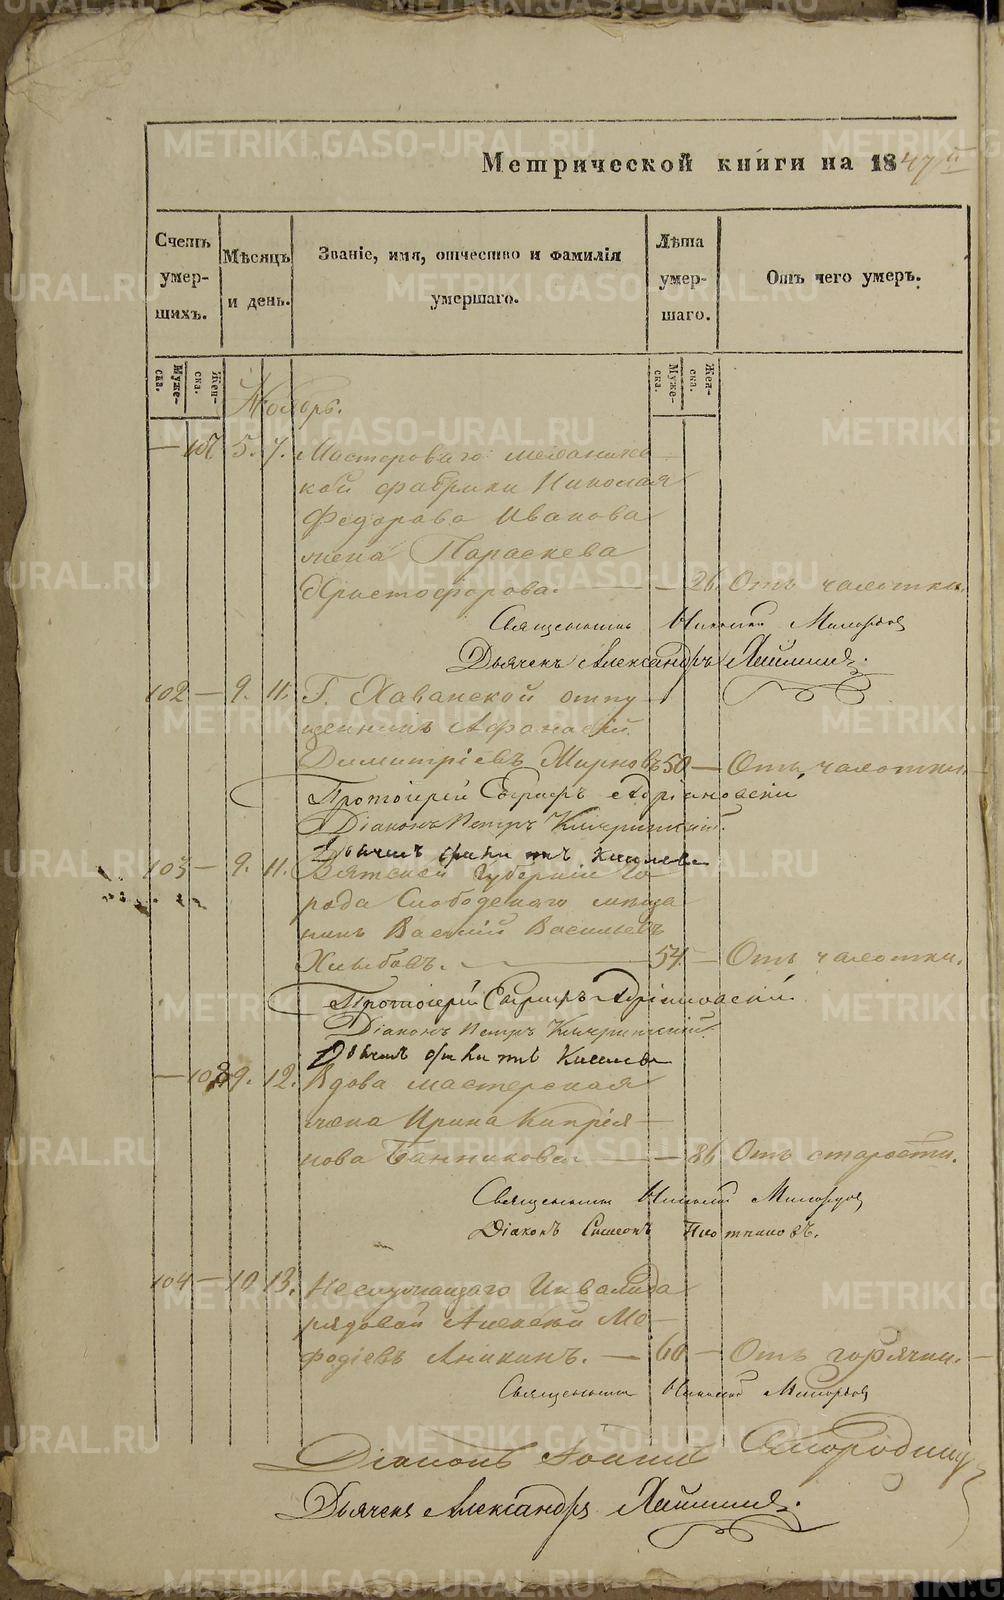 METRIKI.GASO-URAL.RU
Метрической книги на 1847 й
Счетъ умер- шихъ.
Мѣсяцъ и день.
Званіе, имя, отчество и фамилія умершаго.
Лѣта умер- шаго.
Отъ чего умеръ.
Муже- ска.
Жен- ска.
Муже- ска.
Жен- ска.
Ноябрь.
— 107 5. 7. Мастероваго механиче-
кой фабрики Николая
Федорова Иванова
жена Параскева
Христофорова. — 26. Отъ чахотки.
Священникъ Николай
Дьячекъ Александръ
102 — 9. 11. Г. Хаванской отпу-
щенникъ Афанасій
Димитріевъ Жирновъ 50 — Отъ чахотки. —
Протоіерей Евграфъ Адріановскій
Діаконъ Петръ
103 — 9. 11. Вятской Губерніи го-
рода Слободскаго мѣща-
нинъ Василій Васильевъ
54 — Отъ чахотки.
Протоіерей Евграфъ Адріановскій.
Діаконъ Петръ
— 108 9. 12. Вдова мастерская
жена Ирина Кипрія-
нова Банникова — 86 Отъ старости.
Священникъ Николай
Діаконъ Симеонъ Плотниковъ.
104 — 10. 13. Неслужащаго Инвалида
рядовой Алексѣй Ме-
фодіевъ Аникинъ. — 60 — Отъ горячки. —
Священникъ Николай
Діаконъ Іоаннъ Смородинцевъ
Дьячекъ Александръ